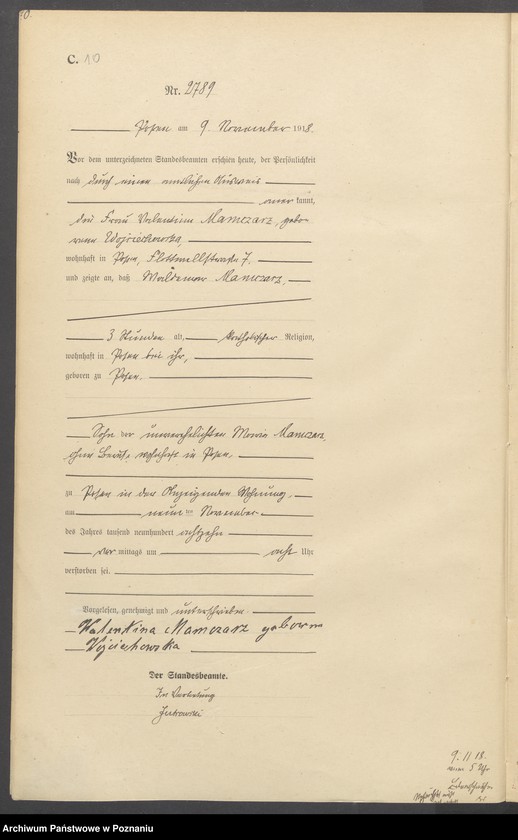 C. 10
Nr. 2789
Posen am 9. November 1918.
Vor dem unterzeichneten Standesbeamten erschien heute, der Persönlichkeit
nach durch einen amtlichen Ausweis
anerkannt,
die Frau Valentine Mamczarz, gebo-
rene Wojciechowska,
wohnhaft in Posen, Flottwellstraße 7.
und zeigte an, daß Waldemar Mamczarz,
3 Stunden alt, katholischer Religion,
wohnhaft in Posen bei ihr,
geboren zu Posen.
Sohn der unverehelichten Maria Mamczarz,
ohne Beruf, wohnhaft in Posen.
zu Posen in der Anzeigenden Wohnung,
am neunten November
des Jahres tausend neunhundert achtzehn
vor mittags um acht Uhr
verstorben sei.
Vorgelesen, genehmigt und unterschrieben.
Walentina Mamczarz geborene
Wojciechowska
Der Standesbeamte.
In Vertretung
9. 11. 18.
5 Uhr
Archiwum Państwowe w Poznaniu